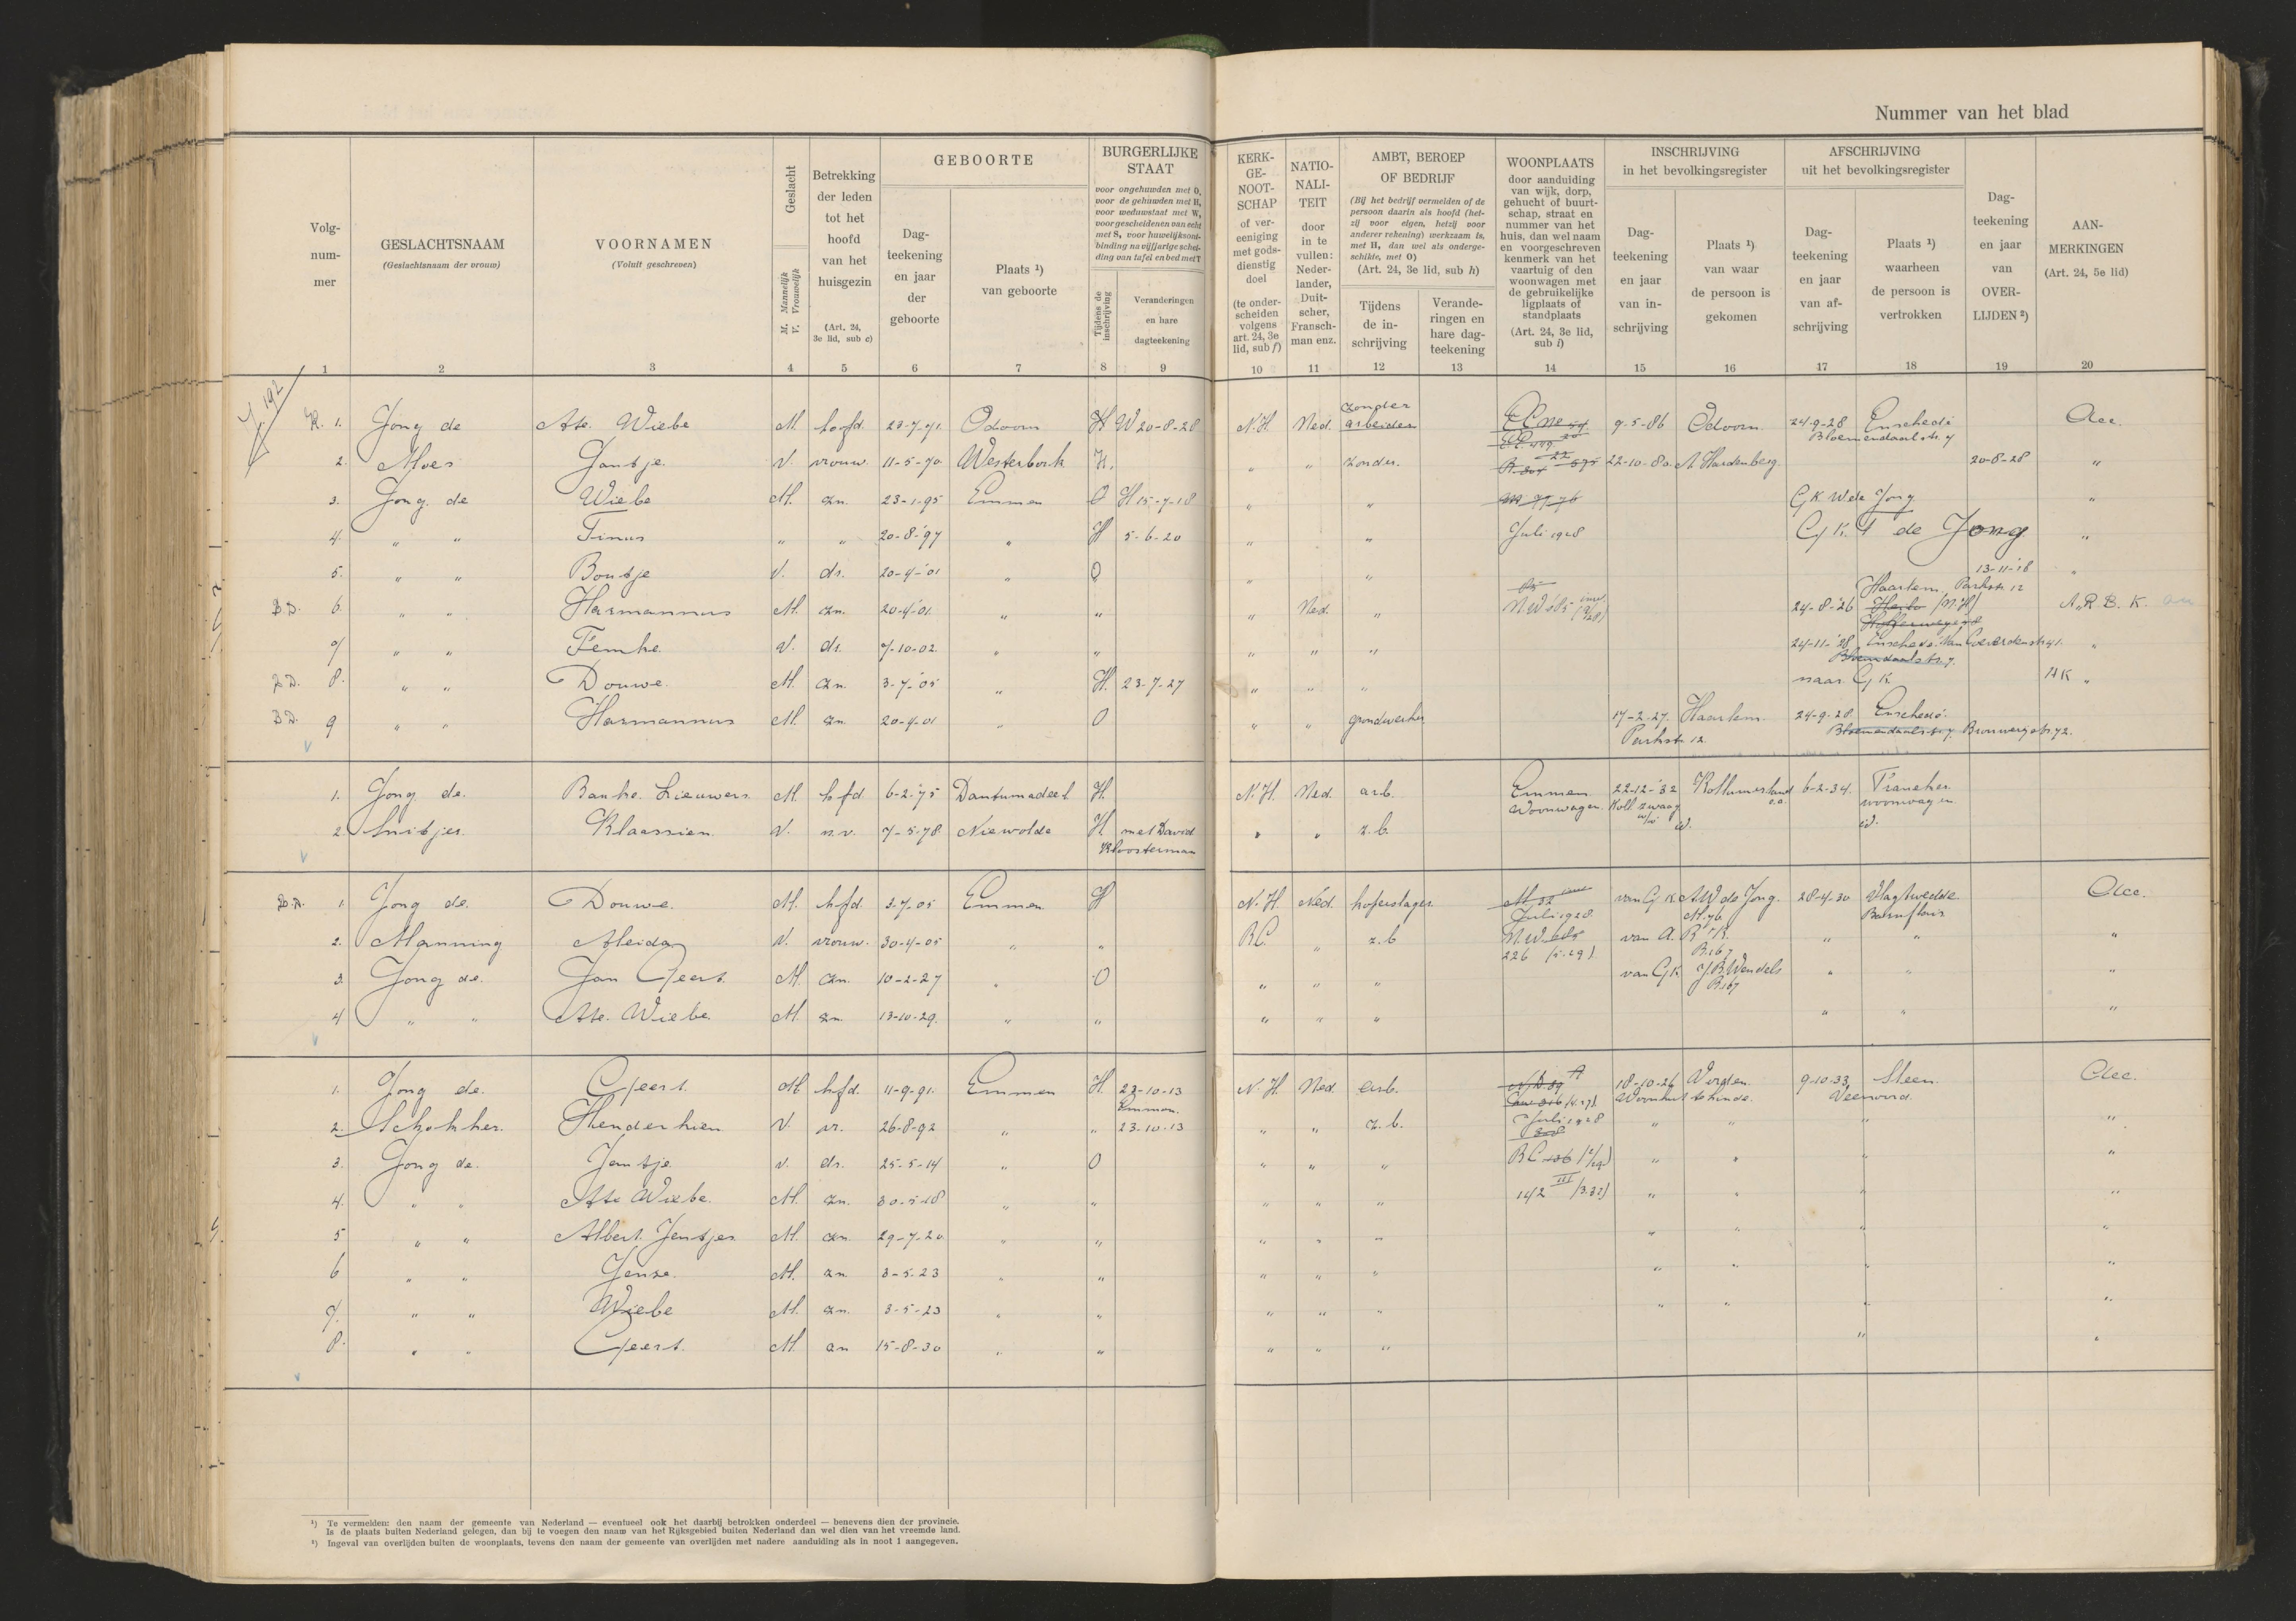 Nummer van het blad
Volg-
num-
mer
GESLACHTSNAAM
(Geslachtsnaam der vrouw)
VOORNAMEN
(Voluit geschreven)
Geslacht
M. Mannelijk
V. Vrouwelijk
Betrekking
der leden
tot het
hoofd
van het
huisgezin
(Art. 24,
3e lid, sub c)
GEBOORTE
Dag-
teekening
en jaar
der
geboorte
Plaats ¹)
van geboorte
BURGERLIJKE
STAAT
voor ongehuwden met O,
voor de gehuwden met H,
voor weduwstaat met W,
voor gescheidenen van echt
met S, voor huwelijksont-
binding na vijfjarige schei-
ding van tafel en bed met T
Tijdens de
inschrijving
Veranderingen
en hare
dagteekening
KERK-
GE-
NOOT-
SCHAP
of ver-
eeniging
met gods-
dienstig
doel
(te onder-
scheiden
volgens
art. 24, 3e
lid, sub f)
NATIO-
NALI-
TEIT
door
in te
vullen:
Neder-
lander,
Duit-
scher,
Fransch-
man enz.
AMBT, BEROEP
OF BEDRIJF
(Bij het bedrijf vermelden of de
persoon daarin als hoofd (het-
zij voor eigen, hetzij voor
anderer rekening) werkzaam is,
met H, dan wel als onderge-
schikte, met O)
(Art. 24, 3e lid, sub h)
Tijdens
de in-
schrijving
Verande-
ringen en
hare dag-
teekening
WOONPLAATS
door aanduiding
van wijk, dorp,
gehucht of buurt-
schap, straat en
nummer van het
huis, dan wel naam
en voorgeschreven
kenmerk van het
vaartuig of den
woonwagen met
de gebruikelijke
ligplaats of
standplaats
(Art. 24, 3e lid,
sub i)
INSCHRIJVING
in het bevolkingsregister
Dag-
teekening
en jaar
van in-
schrijving
Plaats ¹)
van waar
de persoon is
gekomen
AFSCHRIJVING
uit het bevolkingsregister
Dag-
teekening
en jaar
van af-
schrijving
Plaats ¹)
waarheen
de persoon is
vertrokken
Dag-
teekening
en jaar
van
OVER-
LIJDEN ²)
AAN-
MERKINGEN
(Art. 24, 5e lid)
1 2 3 4 5 6 7 8 9 10 11 12 13 14 15 16 17 18 19 20
192
1. Jong de Ate Wiebe M. hoofd. 23-7-71. Odoorn H W 20-8-28 N.H. Ned. zonder arbeider 9-5-86 Odoorn 24-9-28 Enschedé Acc.
Bloemendaalstr. 7
2. Moes Jantje. V. vrouw. 11-5-70. Westerbork H. " " zonder. 22-10-80. A Hardenberg. 20-8-28 "
3. Jong. de Wiebe M. zn. 23-1-95 Emmen O H 15-7-18 " " G K W de Jong "
4. " " Tinus " " 20-8-'97 " H 5-6-20 " " Juli 1928 G K. T de Jong "
5. " " Bontje V. dr. 20-4-'01 " O " " 13-11-18 "
Haarlem Parkstr 12
B.D. 6. " " Harmannus M. zn. 20-4-'01. " " " Ned. " 24-8-'26 A.R.B.K.
7 " " Femke. V. dr. 7-10-02. " " " " " 24-11-'28 Enschedé. "
Bloemendaalstr. 7.
8. " " Douwe. M. zn. 3-7-'05 " H. 23-7-27 " " " naar. G K. HK "
B.D. 9 " " Harmannus M. zn. 20-4-01 " O " " grondwerker 17-2-27. Haarlem. 24-9-28. Enschedé.
Parkstr 12. Brouwerijstr. 72.
1. Jong. de. Bauke. Lieuwers. M. hfd. 6-2-'75 Dantumadeel H. N.H. Ned. arb. Emmen 22-12-'32 Kollumerland 6-2-34. Franeker
Woonwagen. Koll zwaag woonwagen
2. Snitjer. Klaassien. V. 7-5-78. Niewolde H. met David " " z.b. id. id.
Kloosterman
1. Jong de. Douwe. M. hfd. 3-7-05 Emmen H N.H. Ned. hoferslager. van G.K. A W de Jong. 28-4-30 Vlagtwedde Acc.
Juli 1928. M.76.
2. Manning Aleida V. vrouw. 30-4-05 " " RC. " z.b van A. B " " "
226 (5.29) B.167
3. Jong de. Jan Geert. M. zn. 10-2-27 " O " " " van G.K. J.B. Wendels " " "
B.167
4. " " Ate. Wiebe. M. zn. 13-10-29. " " " " " " " "
1. Jong de. Geert. M. hfd. 11-9-91. Emmen H. 23-10-13 N.H. Ned. arb. 18-10-26 Vorden. 9-10-33 Sleen. Acc.
Emmen.
2. Schokker. Henderkien V. vr. 26-8-92 " " 23-10-13 " " z.b. Juli 1928 " " " "
3. Jong de. Jentje. V. dr. 25-5-14 " O " " " " " " "
4. " " Ate Wiebe. M. zn. 30-5-18 " " " " " 142 III (3.32) " " " "
5 " " Albert Jentjes M. zn. 29-7-20 " " " " " " " " "
6 " " Jense. M. zn. 3-5-23 " " " " " " " " "
7. " " Wiebe M. zn. 3-5-23 " " " " " " " " "
8. " " Geert. M. zn 15-8-30 " " " " " " "
¹) Te vermelden: den naam der gemeente van Nederland — eventueel ook het daarbij betrokken onderdeel — benevens dien der provincie.
Is de plaats buiten Nederland gelegen, dan bij te voegen den naam van het Rijksgebied buiten Nederland dan wel dien van het vreemde land.
²) Ingeval van overlijden buiten de woonplaats, tevens den naam der gemeente van overlijden met nadere aanduiding als in noot 1 aangegeven.